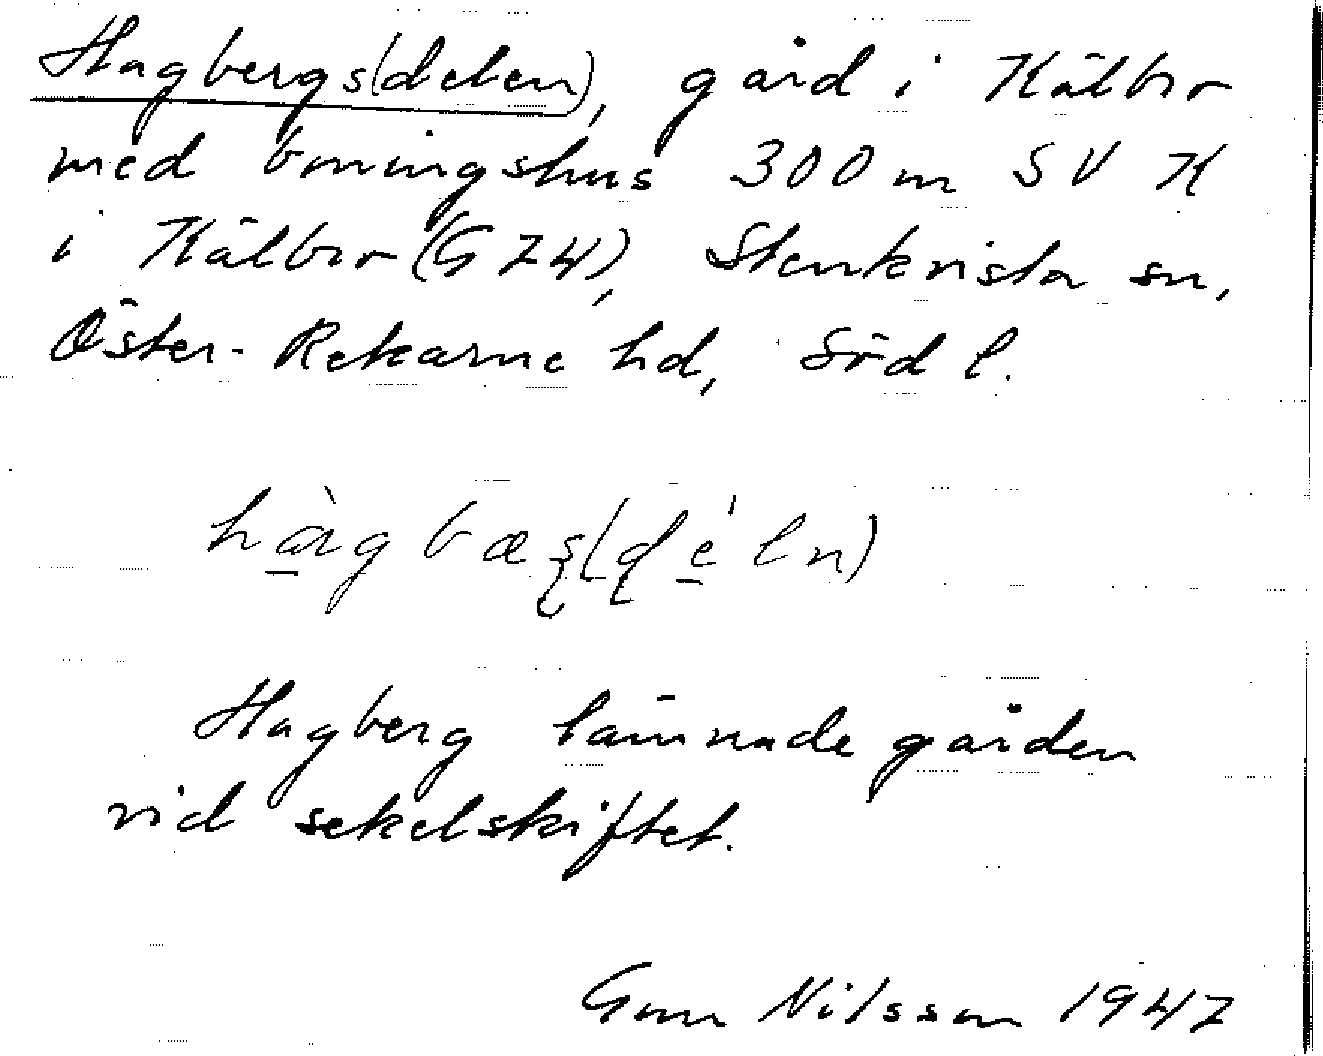 Hagbergs(delen), gård i Kälbro
med boningshus 300 m SV K
i Kälbro (G 74), Stenkvista sn,
Öster-Rekarne hd, Söd l.
hàgbæʂ(ɖéln)
Hagberg lämnade gården
vid sekelskiftet.
Gun Nilsson 1947